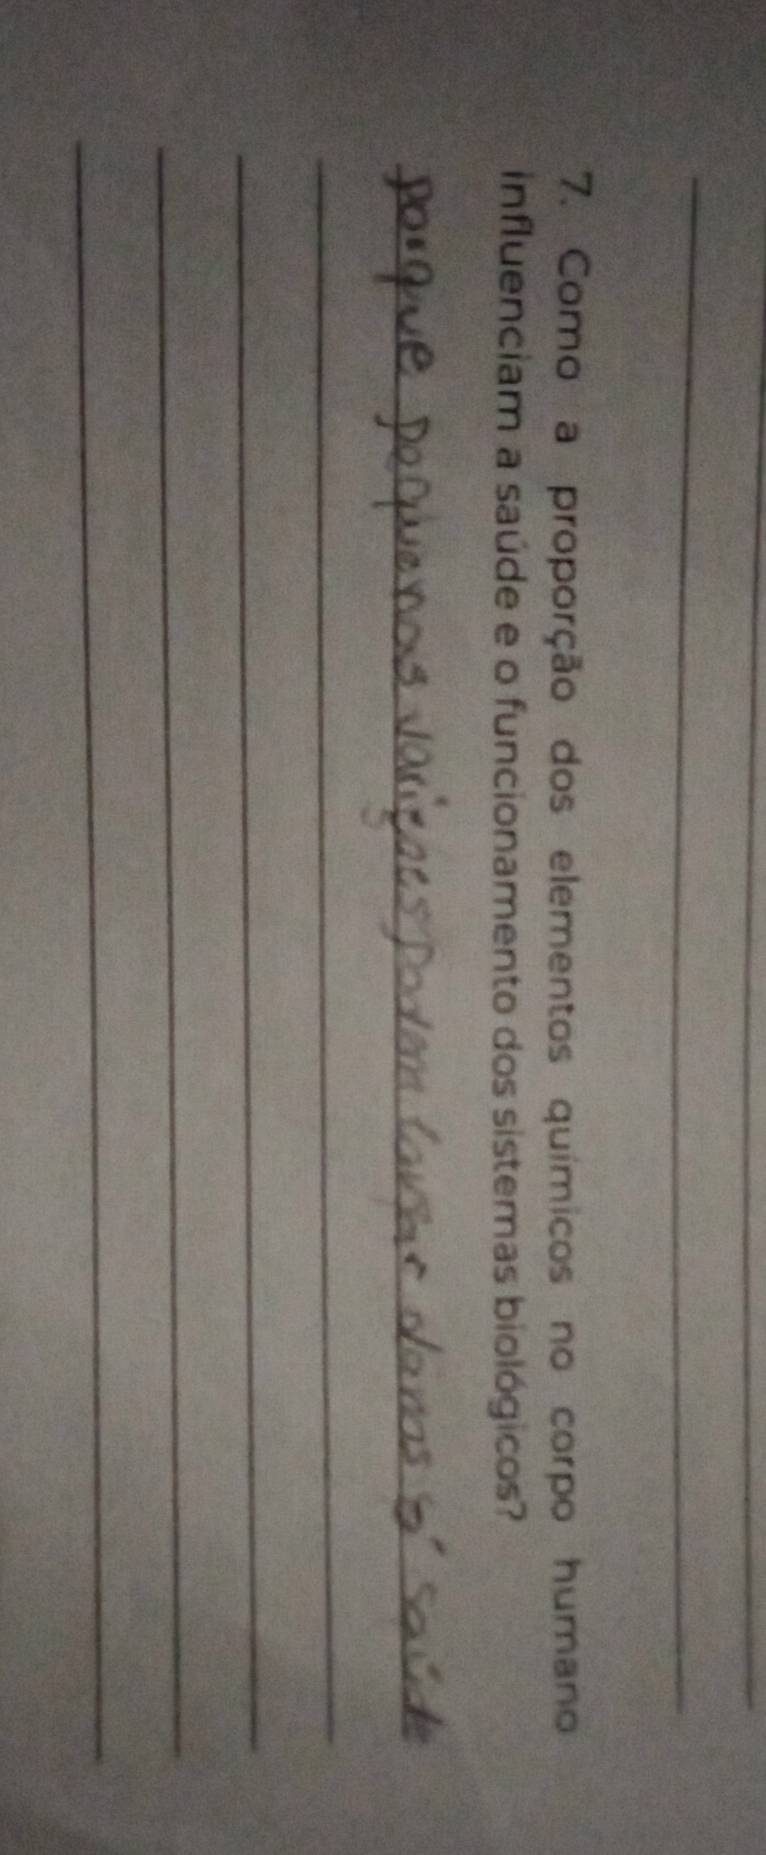 7. Como a proporção dos elementos químicos no corpo humano
influenciam a saúde e o funcionamento dos sistemas biológicos?
porque porquenas variçoes podem causar danos à saúde